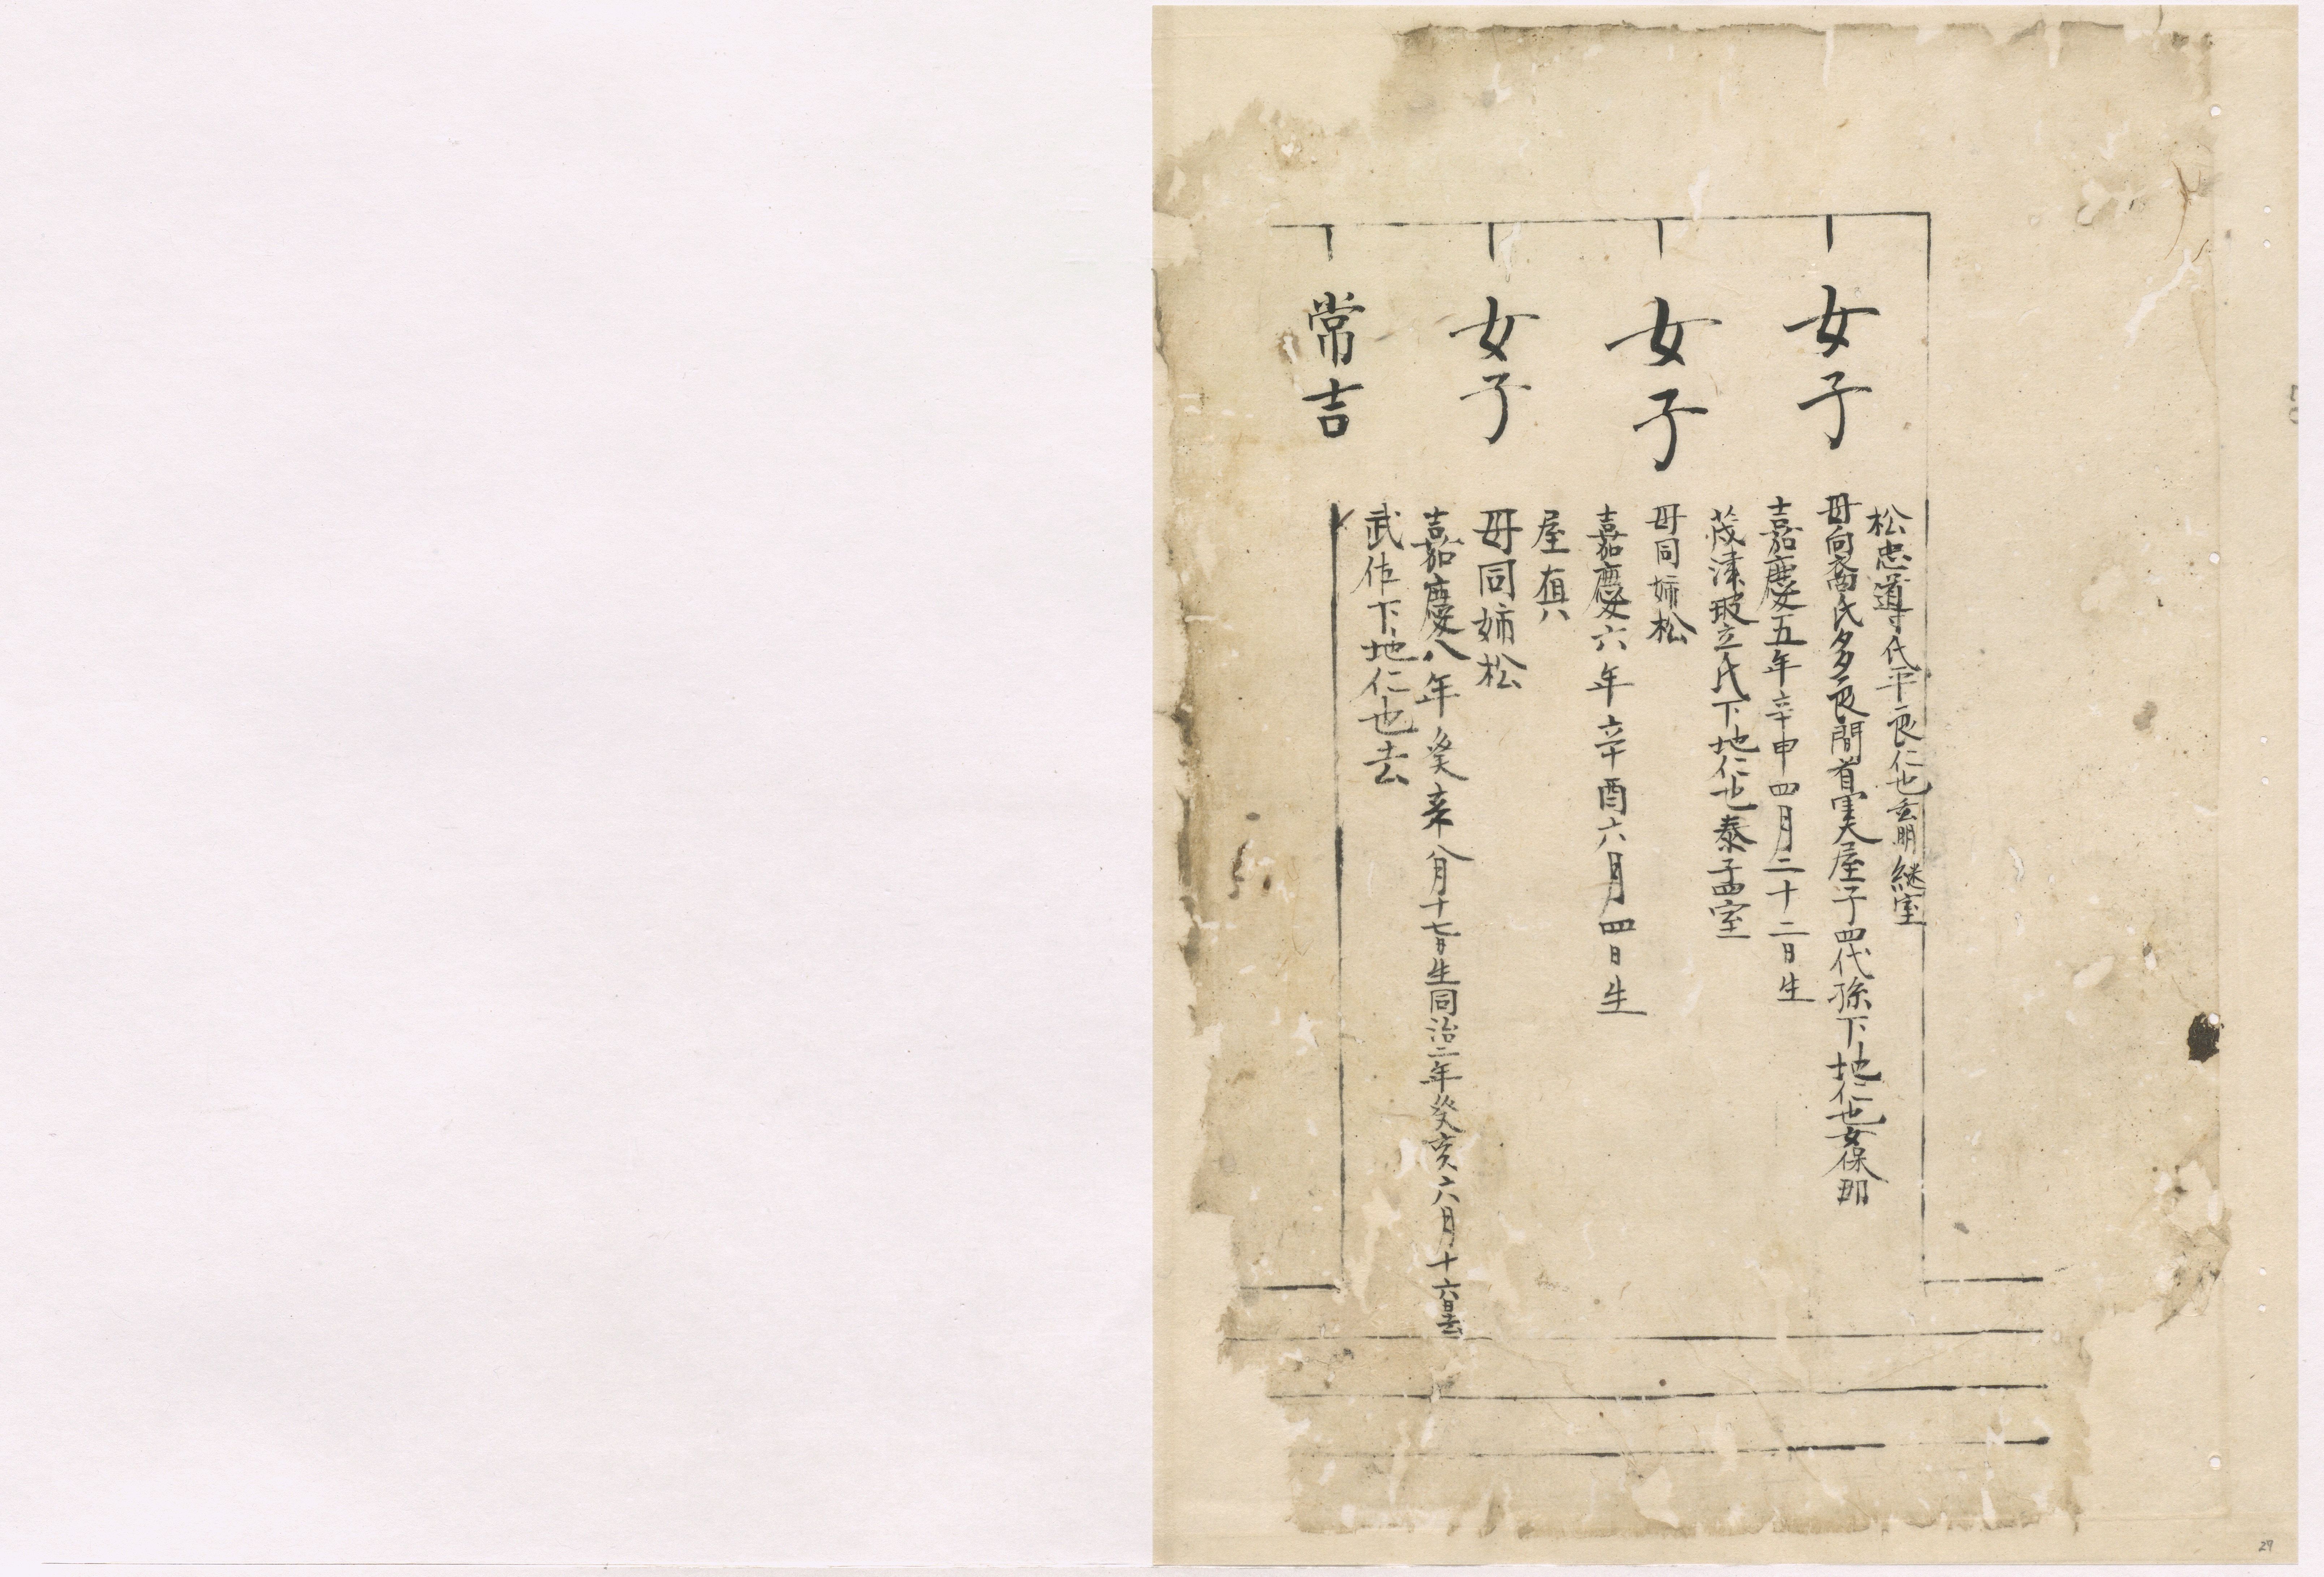 女子
松忠導氏平良仁也玄明継室
母向裔氏多良間首里大屋子四代孫下地仁也女保那
嘉慶五年辛申四月二十二日生
女子
茂津玻立氏下地仁也泰子孟室
母同姉松
嘉慶六年辛酉六月四日生
女子
屋
母同姉松
嘉慶八年癸亥八月十七日生同治二年癸亥六月十六日去
常吉
武佐下地仁也去
27